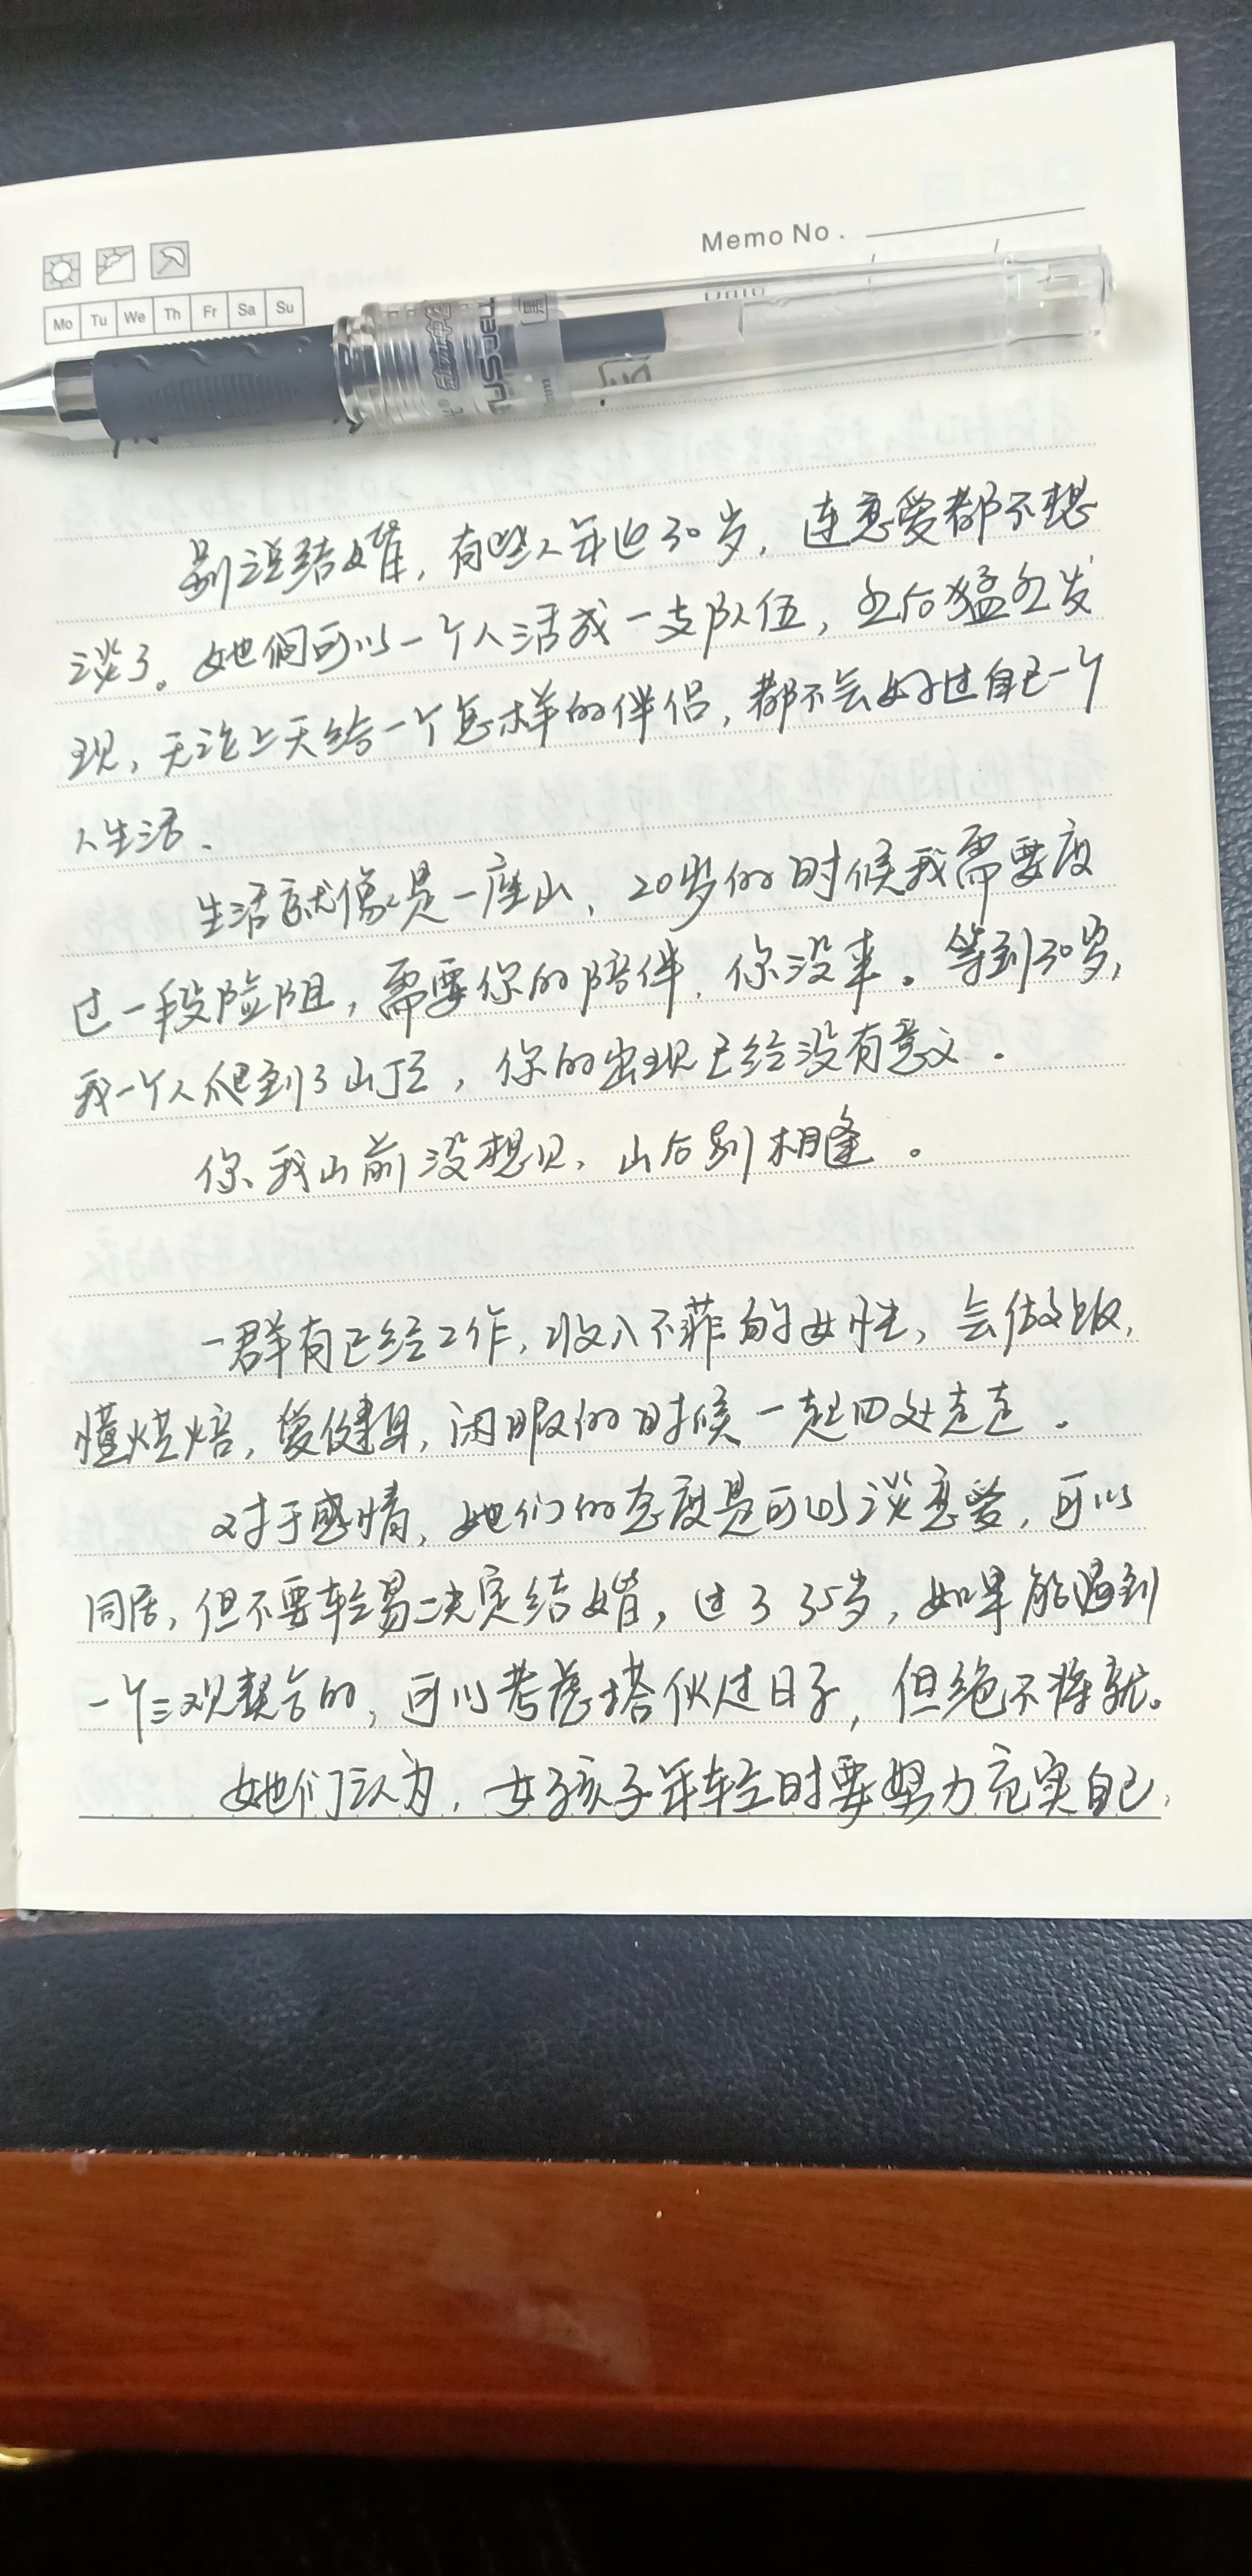 Memo No .
Mo Tu We Th Fr Sa Su
别说结婚，有些人年近30岁，连恋爱都不想
谈了。她们可以一个人活成一支队伍，然后猛然发
现，无论上天给一个怎样的伴侣，都不会好过自己一个
人生活．
生活就像是一座山，20岁的时候我需要度
过一段险阻，需要你的陪伴，你没来。等到30岁，
我一个人爬到了山顶，你的出现已经没有意义．
你我山前没想见，山后别相逢。
一群有已经工作，收入不菲的女性，会做饭，
懂烘焙，爱健身，闲暇的时候一起四处走走．
对于感情，她们的态度是可以谈恋爱，可以
同居，但不要轻易决定结婚，过了35岁，如果能遇到
一个三观契合的，可以考虑搭伙过日子，但绝不将就。
她们认为，女孩子年轻时要努力充实自己，